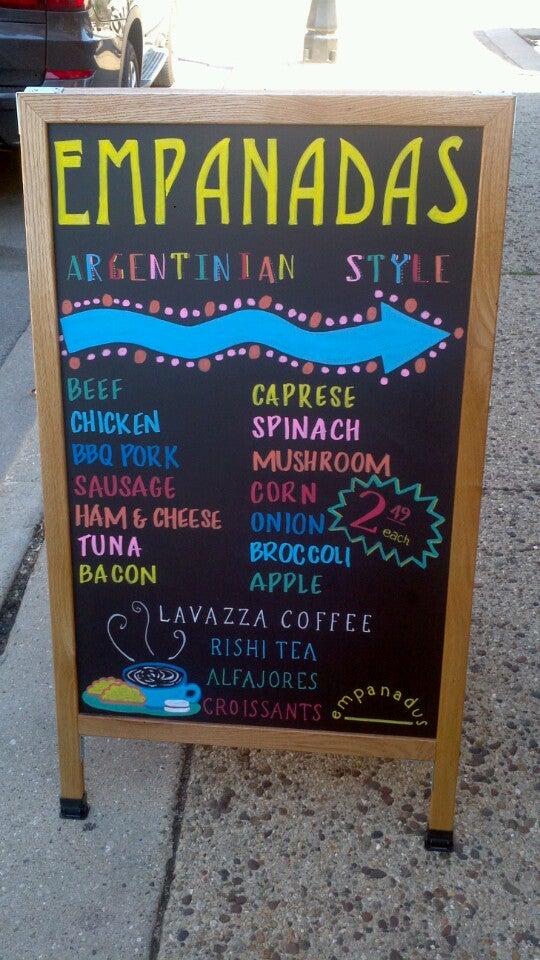 EMPANADAS
ARGENTINIAN STYLE
BEEF
CHICKEN
BBQ PORK
SAUSAGE
HAM & CHEESE
TUNA
BACON
CAPRESE
SPINACH
MUSHROOM
CORN
ONION
BROCCOLI
APPLE
2 49
each
LAVAZZA COFFEE
RISHI TEA
ALFAJORES
CROISSANTS
empanadus